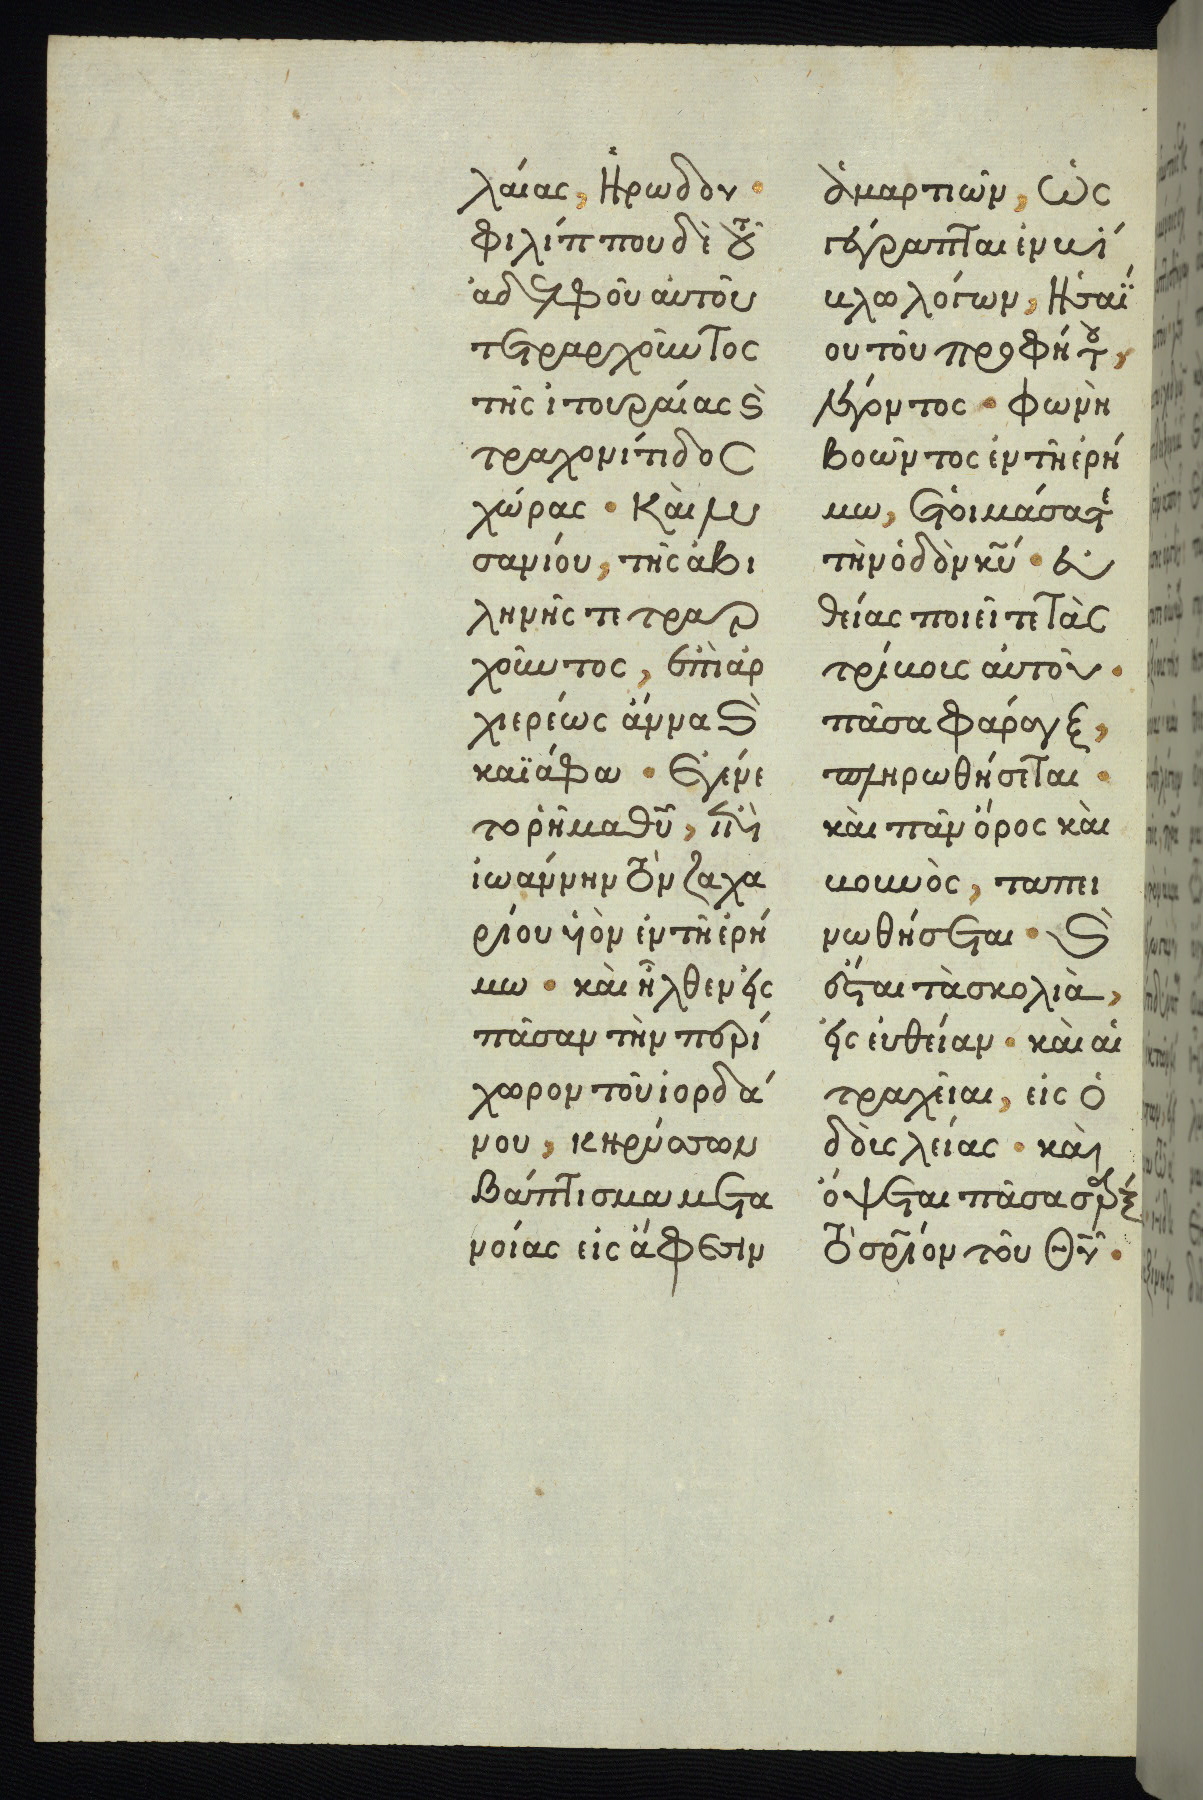 λαίας, Ἡρώδου·
Φιλίππου δὲ τοῦ
ἀδελφοῦ αὐτοῦ
τετραρχοῦντος
τῆς ἰτουραίας ϗ
τραχονίτιδος
χώρας · Καὶ λυ
σανίου, τῆς ἀβι
ληνῆς τετραρ
χοῦντος, ἐπὶ ἀρ
χιερέως ἄννα ϗ
καϊάφα · Ἐγένε
το ῥῆμα θῦ, ἐπὶ
ἰωάννην τὸν ζαχα
ρίου υἱὸν ἐν τῆ ἐρή
μω · καὶ ἦλθεν εἰς
πᾶσαν τὴν περί
χωρον τοῦ ἰορδά
νου, κηρύσσων
βάπτισμα μετα
νοίας εἰς ἄφεσιν
ἁμαρτιῶν, Ὡς
γέγραπται ἐν βί
βλω λόγων, Ἡσαΐ
ου τοῦ προφήτου,
λέγοντος · φωνὴ
βοῶντος ἐν τῆ ἐρή
μω, ἑτοιμάσατε
τὴν ὁδὸν κῦ · εὐ
θείας ποιεῖτε τὰς
τρίβους αὐτοῦ ·
πᾶσα φάραγξ,
πληρωθήσεται ·
καὶ πᾶν ὄρος καὶ
βουνὸς, ταπει
νωθήσεται · ϗ
ἔσται τὰ σκολιὰ,
εἰς εὐθεῖαν · καὶ αἱ
τραχεῖαι, εἰς ὁ
δοὺς λείας · καὶ
ὄψεται πᾶσα σὰρξ
τὸ σρίον τοῦ Θῦ ·